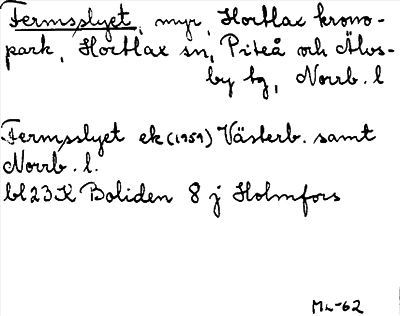 Fermsslyet, myr, Hortlax krono-
park, Hortlax sn, Piteå och Älvs-
by tg, Norrb. l
Fermsslyet ek (1959) Västerb. samt
Norrb. l.
bl 23K Boliden 8 j Holmfors
ML-62